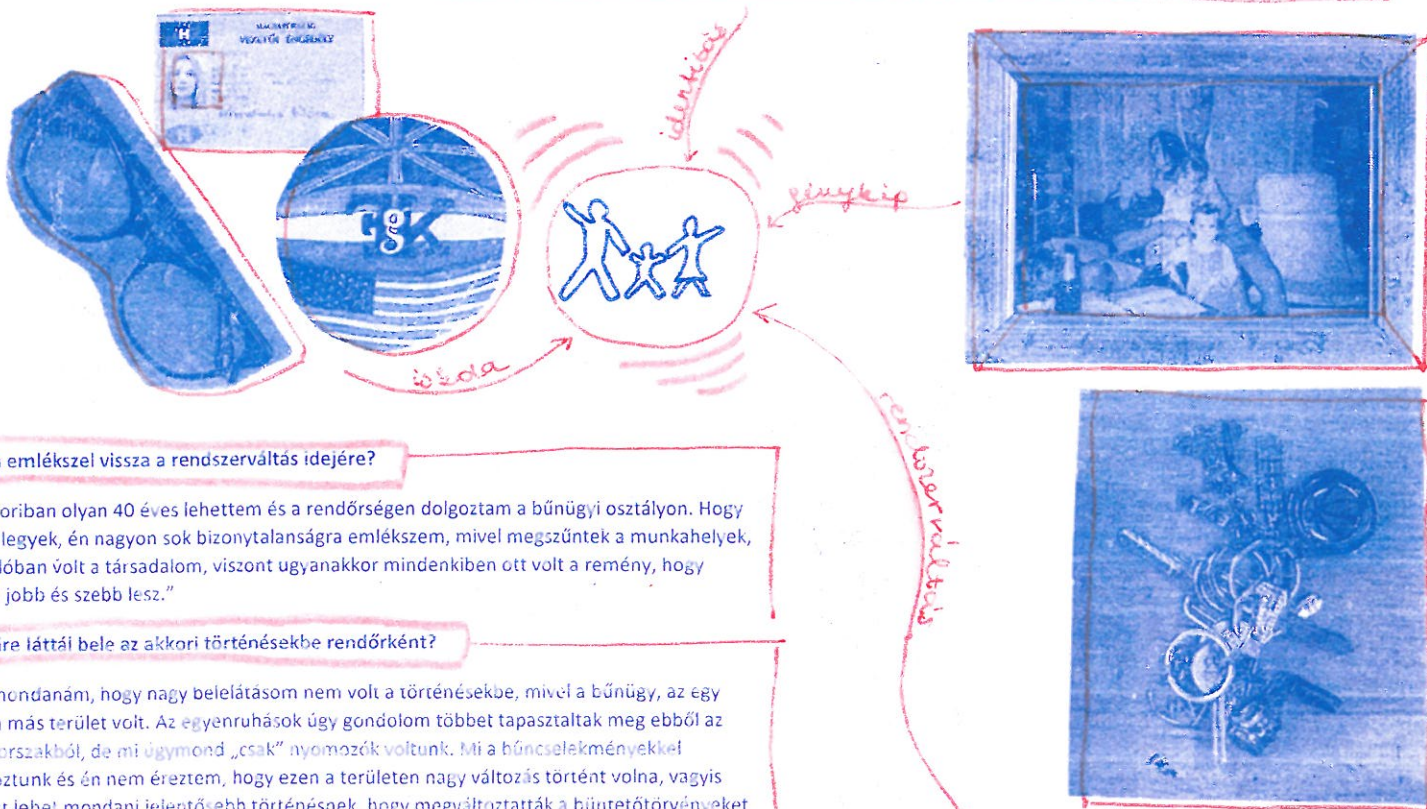 MAGYARORSZÁG
VEZETŐI ENGEDÉLY
H
identitás
fénykép
iskola
rendszerváltás
emlékszel vissza a rendszerváltás idejére?
oriban olyan 40 éves lehettem és a rendőrségen dolgoztam a bűnügyi osztályon. Hogy
legyek, én nagyon sok bizonytalanságra emlékszem, mivel megszűntek a munkahelyek,
lóban volt a társadalom, viszont ugyanakkor mindenkiben ott volt a remény, hogy
jobb és szebb lesz.”
ire láttál bele az akkori történésekbe rendőrként?
mondanám, hogy nagy belelátásom nem volt a történésekbe, mivel a bűnügy, az egy
más terület volt. Az egyenruhások úgy gondolom többet tapasztaltak meg ebből az
orszakból, de mi úgymond „csak” nyomozók voltunk. Mi a bűncselekményekkel
oztunk és én nem éreztem, hogy ezen a területen nagy változás történt volna, vagyis
t lehet mondani jelentősebb történésnek, hogy megváltoztatták a büntetőtörvényeket